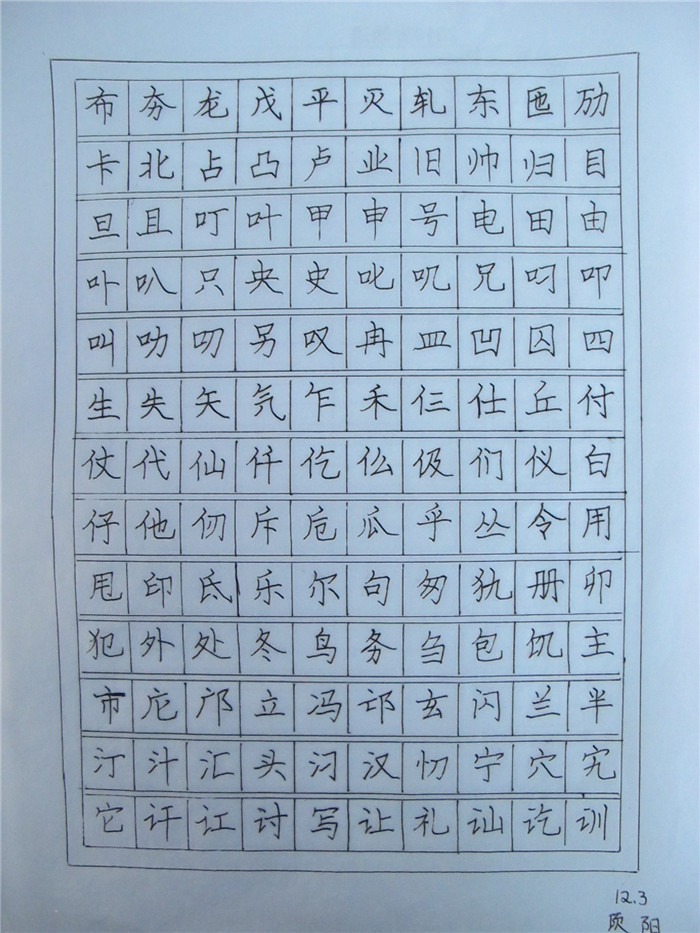 布夯龙戊平灭轧东匜劢
卡北占凸卢业旧帅归目
旦且叮叶甲申号电田由
卟叭只央史叱叽兄叼叩
叫叻叨另叹冉皿凹囚四
生失矢氕乍禾仨仕丘付
仗代仙仟仡仫伋们仪白
仔他仞斥卮瓜乎丛令用
甩印氐乐尔句匆犰册卯
犯外处冬鸟务刍包饥主
市庀邝立冯邙玄闪兰半
汀汁汇头汈汉忉宁穴宄
它讦讧讨写让礼讪讫训
12.3
欧阳